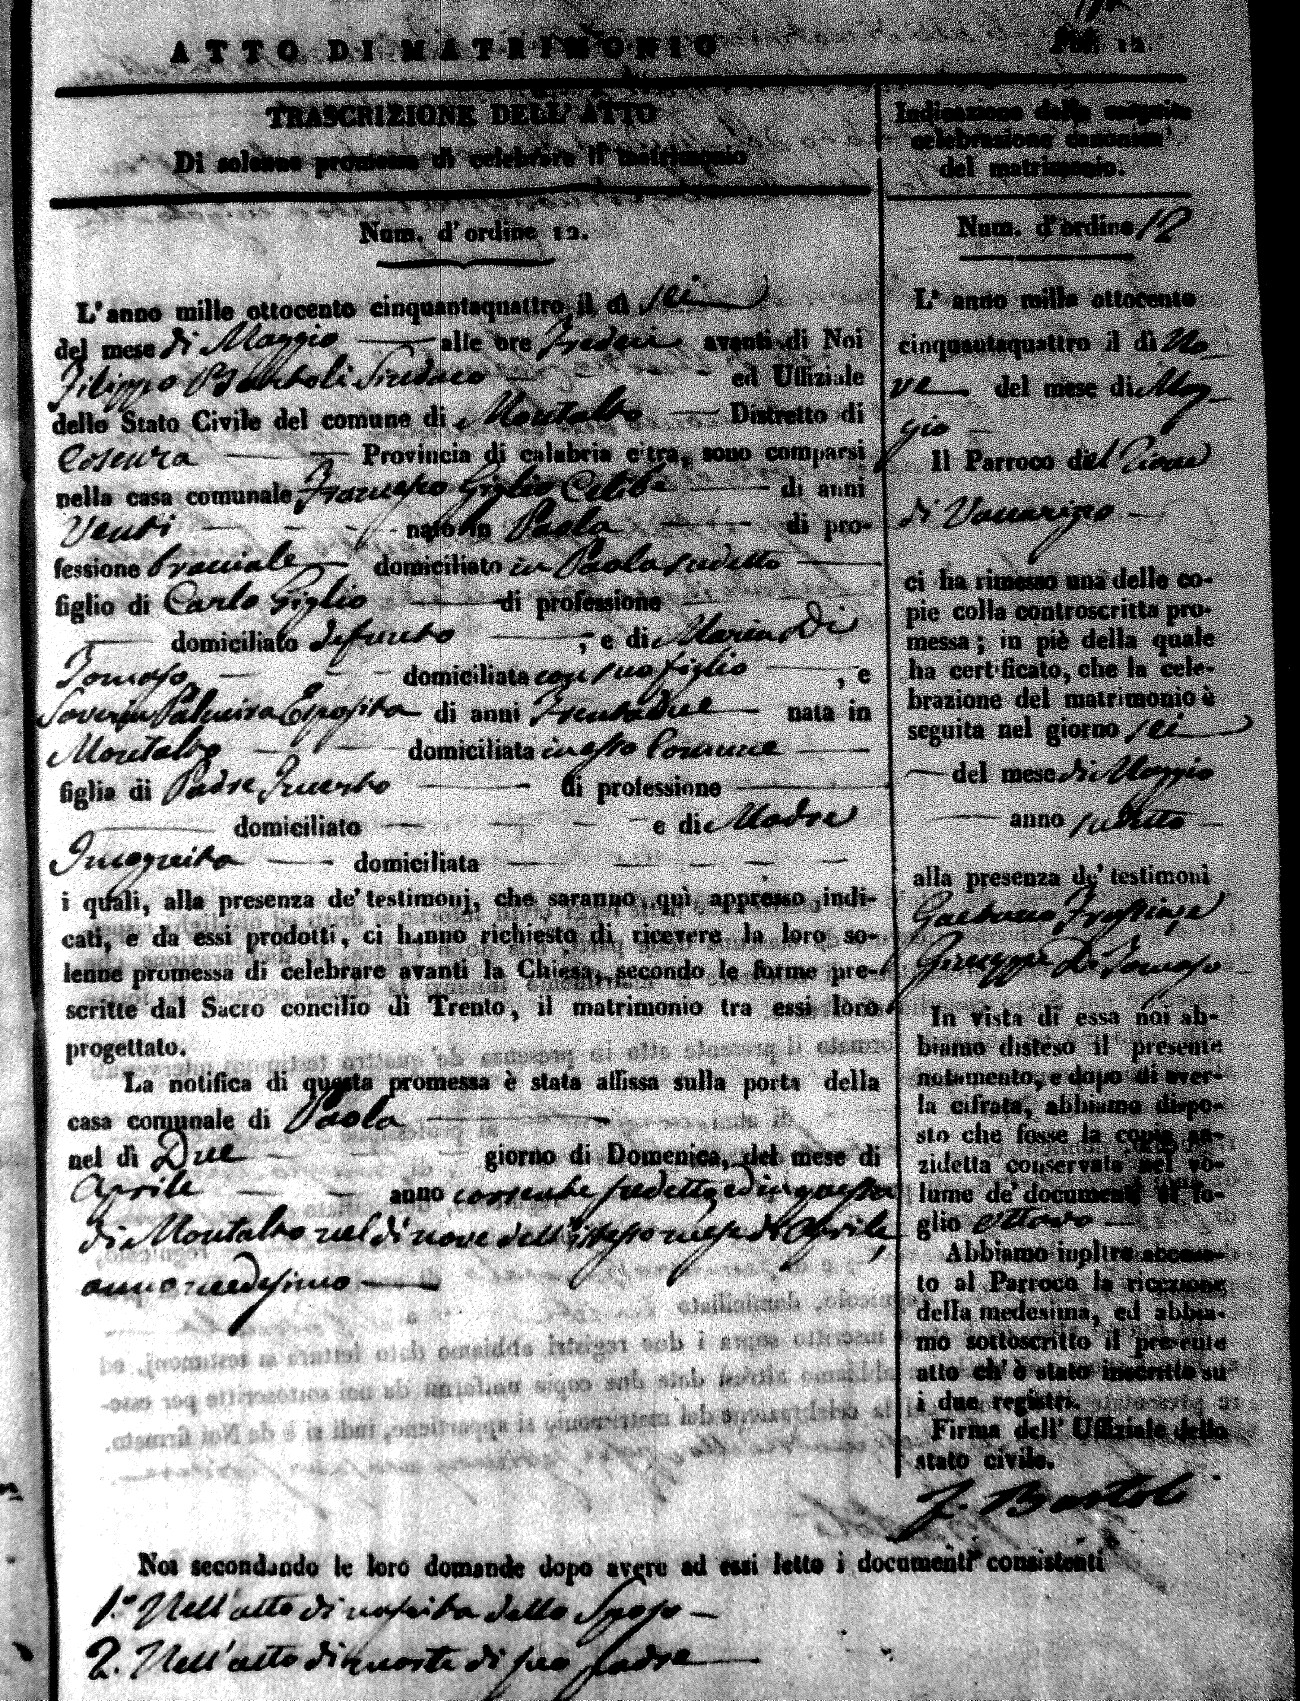 ATTO DI MATRIMONIO
Fol. 12.
TRASCRIZIONE DELL' ATTO
Di solenne promessa di celebrare il matrimonio
Num. d'ordine 12.
L'anno mille ottocento cinquantaquattro il dì sei
del mese di Maggio alle ore Tredeci avanti di Noi
Filippo Bartoli Sindaco ed Uffiziale
dello Stato Civile del comune di Montalto Distretto di
Cosenza Provincia di calabria citra, sono comparsi
nella casa comunale Francesco Giglio Celibe di anni
Venti nato in Paola di pro-
fessione bracciale domiciliato in Paola sudetto
figlio di Carlo Giglio di professione
domiciliato defunto ; e di Maria Di
Tomaso domiciliata con suo figlio , e
Palmira Esposita di anni Trentadue nata in
Montalto domiciliata in esso Comune
figlia di Padre Incerto di professione
domiciliato e di Madre
Incognita domiciliata
i quali, alla presenza de' testimonj, che saranno quì appresso indi-
cati, e da essi prodotti, ci hanno richiesto di ricevere la loro so-
lenne promessa di celebrare avanti la Chiesa, secondo le forme pre-
scritte dal Sacro concilio di Trento, il matrimonio tra essi loro
progettato.
La notifica di questa promessa è stata affissa sulla porta della
casa comunale di Paola
nel dì Due giorno di Domenica, del mese di
Aprile anno corrente sudetto, ed in questa
di Montalto nel dì nove dell'istesso mese di Aprile,
anno medesimo
Indicazione della seguita
celebrazione canonica
del matrimonio.
Num. d'ordine 12
L' anno mille ottocento
cinquantaquattro il dì No-
ve del mese di Mag-
gio
Il Parroco del
di Vaccarizzo
ci ha rimesso una delle co-
pie colla controscritta pro-
messa; in piè della quale
ha certificato, che la cele-
brazione del matrimonio è
seguita nel giorno sei
del mese di Maggio
anno sudetto
alla presenza de' testimoni
Gaetano
Giuseppe Di Tomaso
In vista di essa noi ab-
biamo disteso il presente
notamento, e dopo di aver-
la cifrata, abbiamo dispo-
sto che fosse la copia an-
zidetta conservata nel vo-
lume de' documenti al fo-
glio ottavo
Abbiamo inoltre accusa-
to al Parroco la ricezione
della medesima, ed abbia-
mo sottoscritto il presente
atto ch' è stato inscritto su
i due registri.
Firma dell' Uffiziale dello
stato civile.
F. Bartoli
Noi secondando le loro domande dopo avere ad essi letto i documenti consistenti
1.° Nell'atto di nascita dello Sposo
2. Nell'atto di morte di suo padre